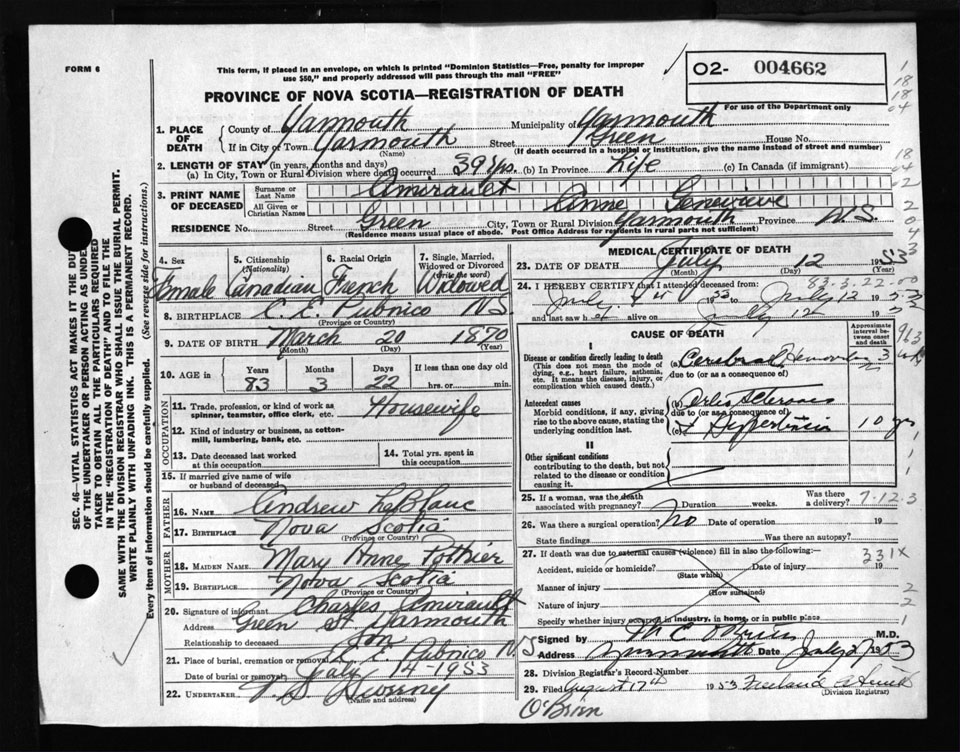 FORM 6
This form, if placed in an envelope, on which is printed "Dominion Statistics—Free, penalty for improper
use $50," and properly addressed will pass through the mail "FREE"
O2- 004662
For use of the Department only
PROVINCE OF NOVA SCOTIA—REGISTRATION OF DEATH
1. PLACE OF DEATH
County of Yarmouth Municipality of Yarmouth
If in City or Town Yarmouth Street Green House No.
(Name) (If death occurred in a hospital or institution, give the name instead of street and number)
2. LENGTH OF STAY (in years, months and days)
(a) In City, Town or Rural Division where death occurred 39 yrs. (b) In Province Life (c) In Canada (if immigrant)
3. PRINT NAME OF DECEASED
Surname or Last Name Amirault
All Given or Christian Names Anne Genevieve
RESIDENCE No. Street Green City, Town or Rural Division Yarmouth Province N.S.
(Residence means usual place of abode. Post Office Address for residents in rural parts not sufficient)
SEC. 46—VITAL STATISTICS ACT MAKES IT THE DUTY
OF THE UNDERTAKER OR PERSON ACTING AS UNDER-
TAKER TO OBTAIN ALL THE PARTICULARS REQUIRED
IN THE "REGISTRATION OF DEATH" AND TO FILE THE
SAME WITH THE DIVISION REGISTRAR WHO SHALL ISSUE THE BURIAL PERMIT.
WRITE PLAINLY WITH UNFADING INK. THIS IS A PERMANENT RECORD.
Every item of information should be carefully supplied. (See reverse side for instructions.)
4. Sex 5. Citizenship (Nationality) 6. Racial Origin 7. Single, Married, Widowed or Divorced (Write the word)
Female Canadian French Widowed
8. BIRTHPLACE C. E. Pubnico N.S.
(Province or Country)
9. DATE OF BIRTH March 20 1870
(Month) (Day) (Year)
10. AGE in Years Months Days If less than one day
83 3 22 hrs. or min.
OCCUPATION
11. Trade, profession, or kind of work as spinner, teamster, office clerk, etc. Housewife
12. Kind of industry or business, as cotton-mill, lumbering, bank, etc.
13. Date deceased last worked at this occupation
14. Total yrs. spent in this occupation
15. If married give name of wife or husband of deceased
FATHER
16. NAME Andrew LeBlanc
17. BIRTHPLACE Nova Scotia
(Province or Country)
MOTHER
18. MAIDEN NAME Mary Anne Pothier
19. BIRTHPLACE Nova Scotia
(Province or Country)
20. Signature of informant Charles Amirault
Address Green St Yarmouth
Relationship to deceased Son
21. Place of burial, cremation or removal C. E. Pubnico N.S.
Date of burial or removal July 14-1953
22. UNDERTAKER Sweeny
(Name and address)
MEDICAL CERTIFICATE OF DEATH
23. DATE OF DEATH July 12 1953
(Month) (Day) (Year)
83-3-22-00
24. I HEREBY CERTIFY that I attended deceased from
July 1953 to July 12 1953
and last saw her alive on July 12 1953
CAUSE OF DEATH
Approximate interval between onset and death
I
Disease or condition directly leading to death
(This does not mean the mode of dying, e.g., heart failure, asthenia, etc. It means the disease, injury, or complication which caused death.)
(a) Cerebral Hemorrhage 3
due to (or as a consequence of)
Antecedent causes
Morbid conditions, if any, giving rise to the above cause, stating the underlying condition last.
(b) Arterio Sclerosis
due to (or as a consequence of)
(c) & Hypertension 10 yrs
II
Other significant conditions
contributing to the death, but not related to the disease or condition causing it.
25. If a woman, was the death associated with pregnancy? Duration weeks. Was there a delivery?
7-12-3
26. Was there a surgical operation? No Date of operation 19
State findings Was there an autopsy?
27. If death was due to external causes (violence) fill in also the following:—
331X
Accident, suicide or homicide? Date of injury 19
(State which)
Manner of injury
(How sustained)
Nature of injury
Specify whether injury occurred in industry, in home, or in public place
Signed by M C O'Brien M.D.
Address Yarmouth Date July 1953
28. Division Registrar's Record Number
29. Filed August 17th 1953
(Division Registrar)
O'Brien